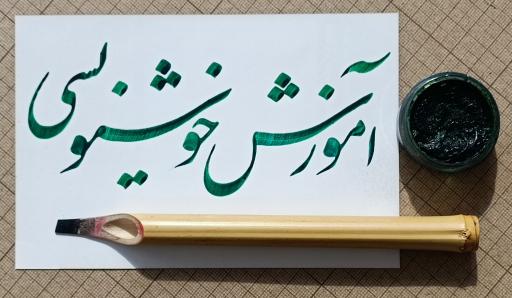 آموزش خوشنویسی